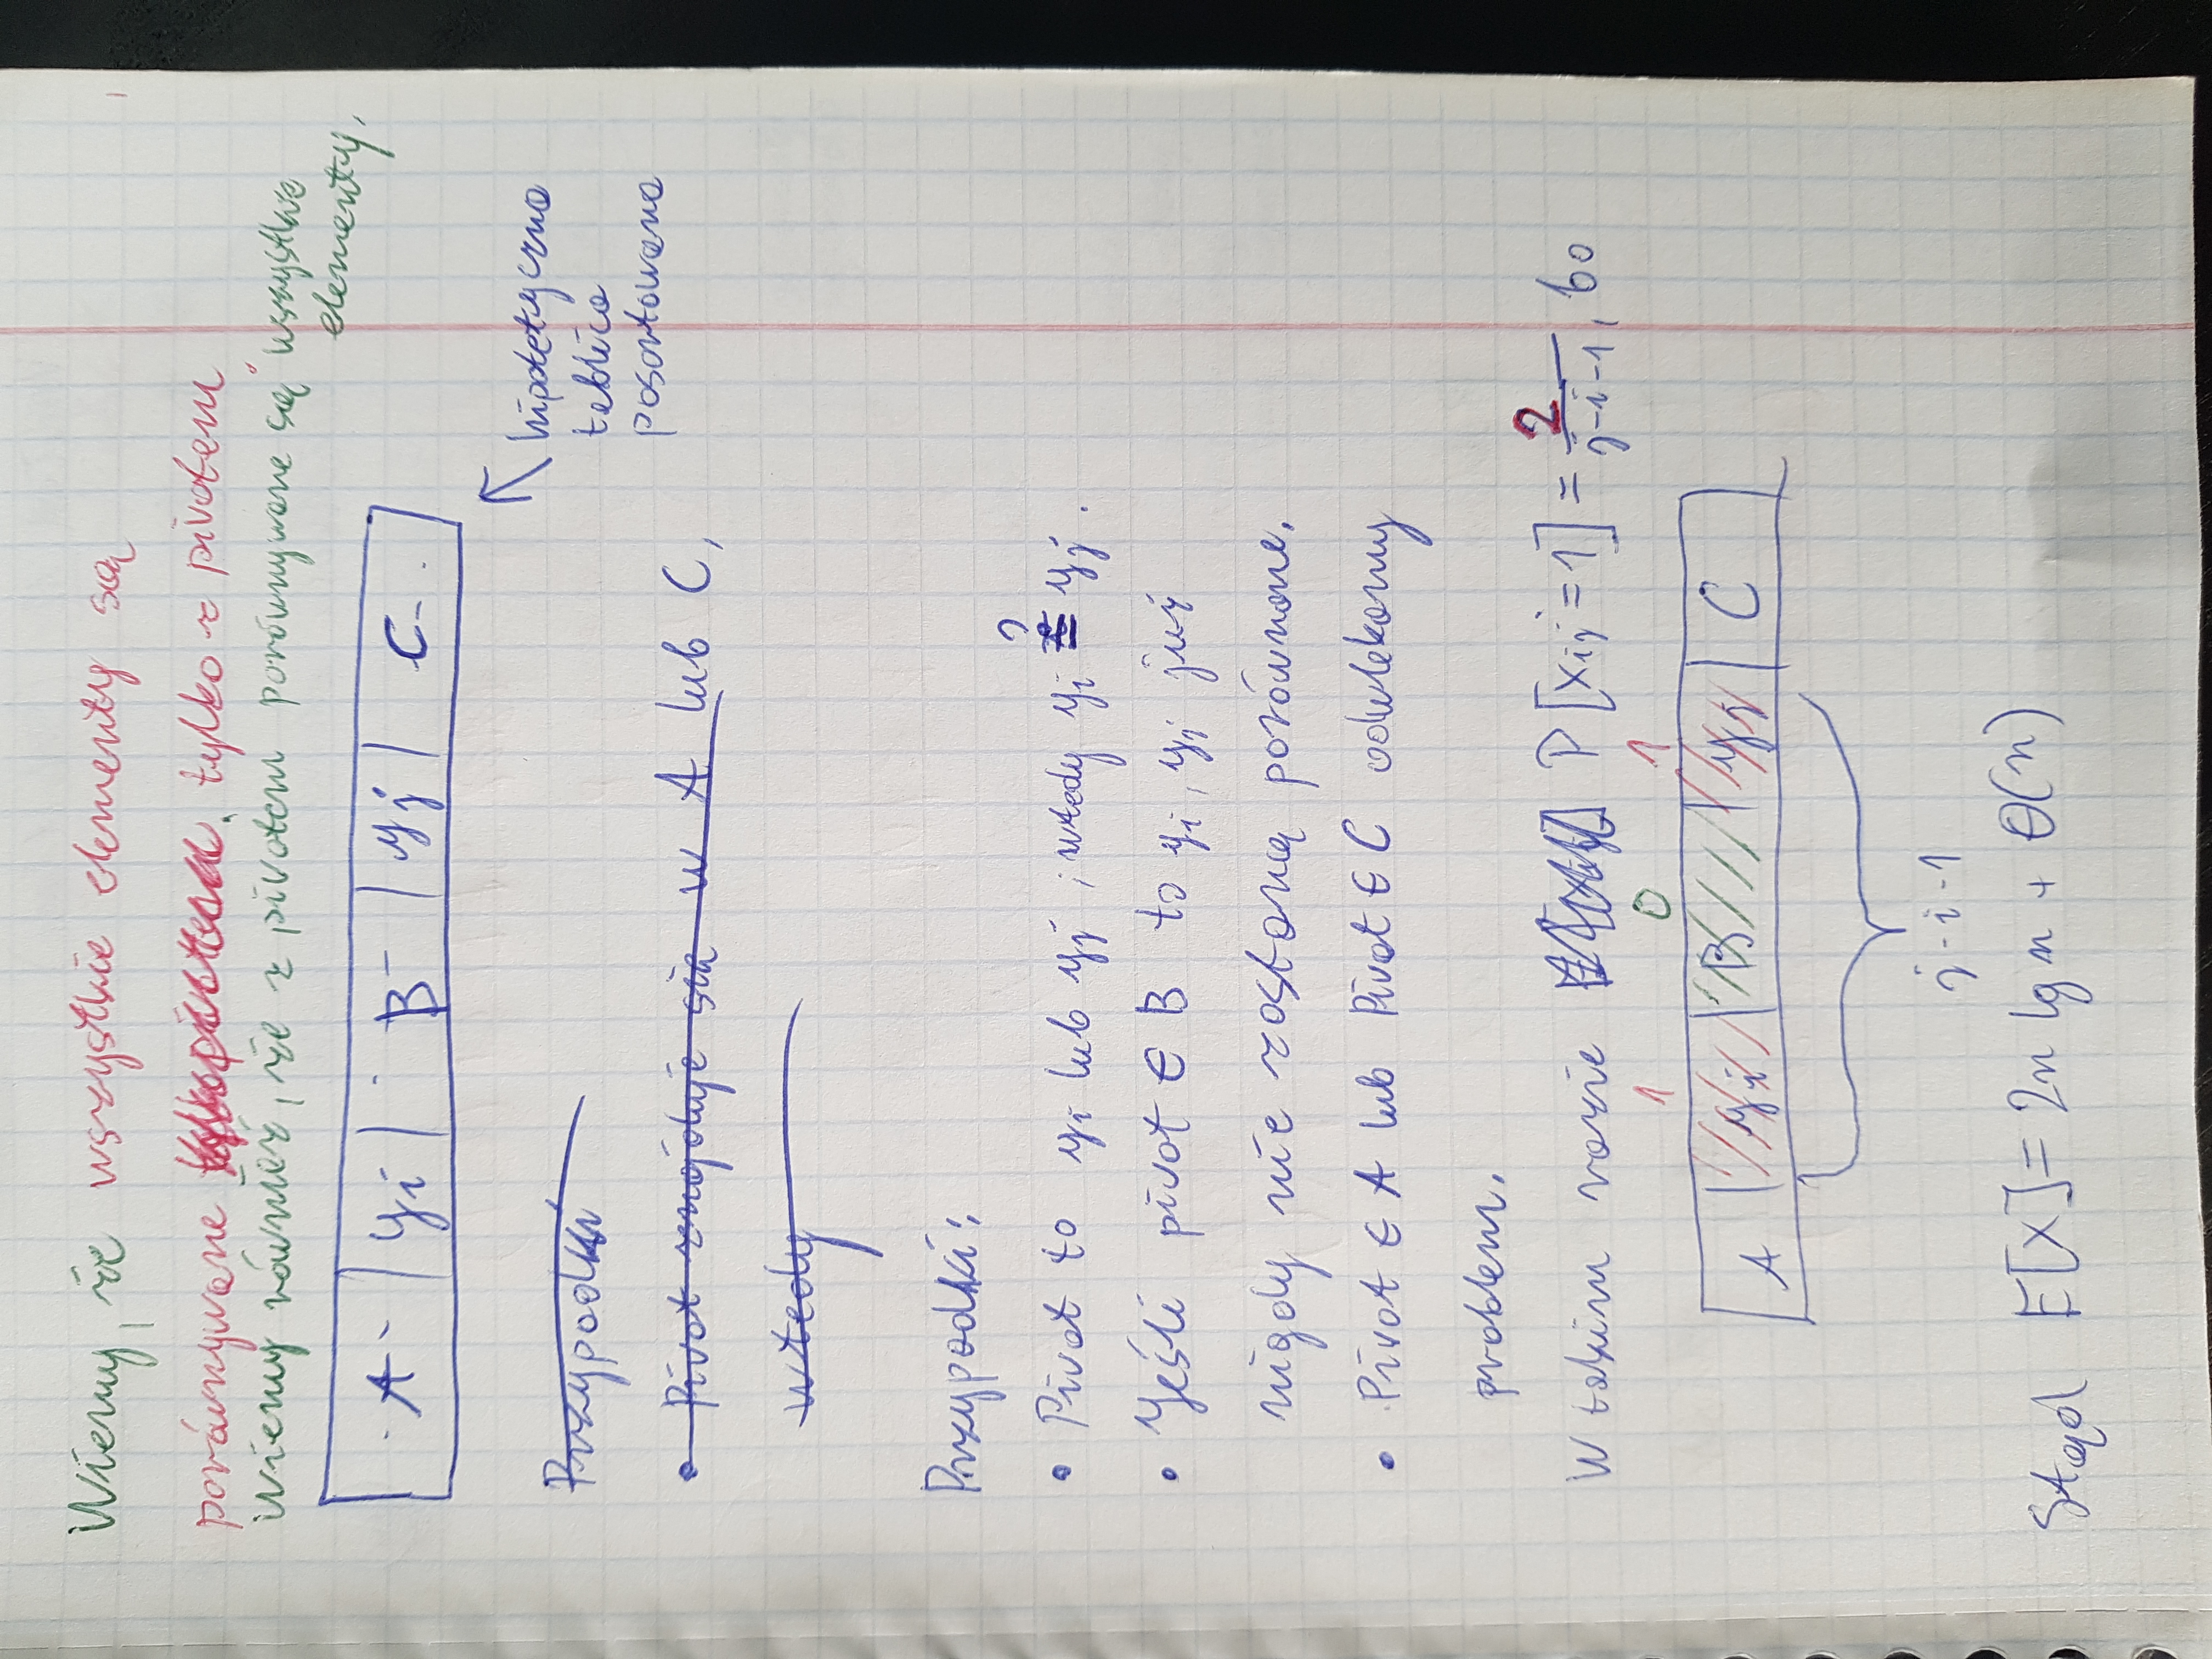 Wiemy, że wszystkie elementy są
porównywane tylko z pivotem.
Wiemy również, że z pivotem porównywane są wszystkie
elementy.
A | yi | B | yj | C
hipotetyczna
tablica
posortowana
Przypadki
• Pivot znajduje się w A lub C,
wtedy
Przypadki:
• Pivot to yi lub yj, wtedy yi ≟ yj.
• Jeśli pivot ∈ B to yi, yj już
nigdy nie zostaną porównane.
• Pivot ∈ A lub Pivot ∈ C odwlekamy
problem.
W takim razie P[xij = 1] = 2/(j-i-1), bo
1 0 1
A | yi | B | yj | C
j-i-1
Stąd E[X] = 2n lg n + Θ(n)